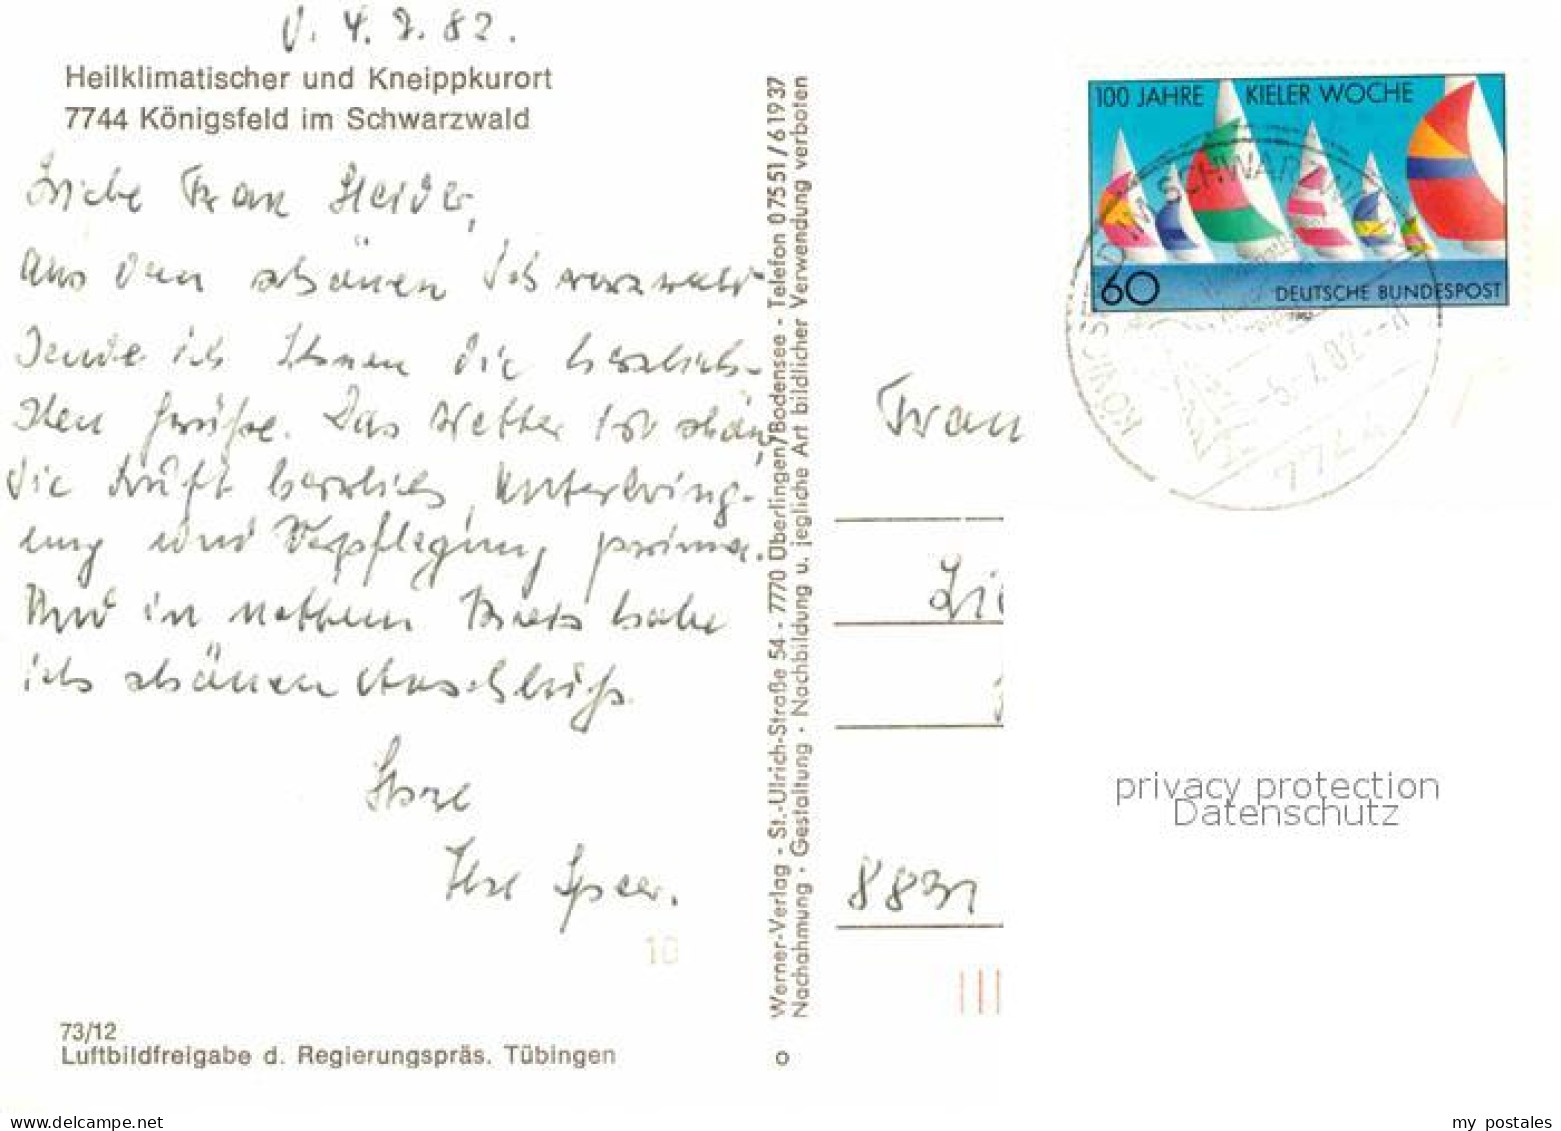 v. 4. 7. 82.
Heilklimatischer und Kneippkurort
7744 Königsfeld im Schwarzwald
Liebe Frau Heider,
aus dem schönen Schwarzwald
sende ich Ihnen die herzlich-
sten Grüße. Das Wetter ist schön,
die Luft herrlich, Unterbring-
ung und Verpflegung prima.
Und in nettem Kreis habe
ich schönen Anschluß.
Ihre
Ilse Speer.
10
73/12
Luftbildfreigabe d. Regierungspräs. Tübingen
Werner-Verlag - St.-Ulrich-Straße 54 - 7770 Überlingen/Bodensee - Telefon 07551/61937
Nachahmung · Gestaltung · Nachbildung u. jegliche Art bildlicher Verwendung verboten
100 JAHRE KIELER WOCHE
60 DEUTSCHE BUNDESPOST
SCHWARZW
-5.-7.82--
7744
Frau
8831
privacy protection
Datenschutz
my postales